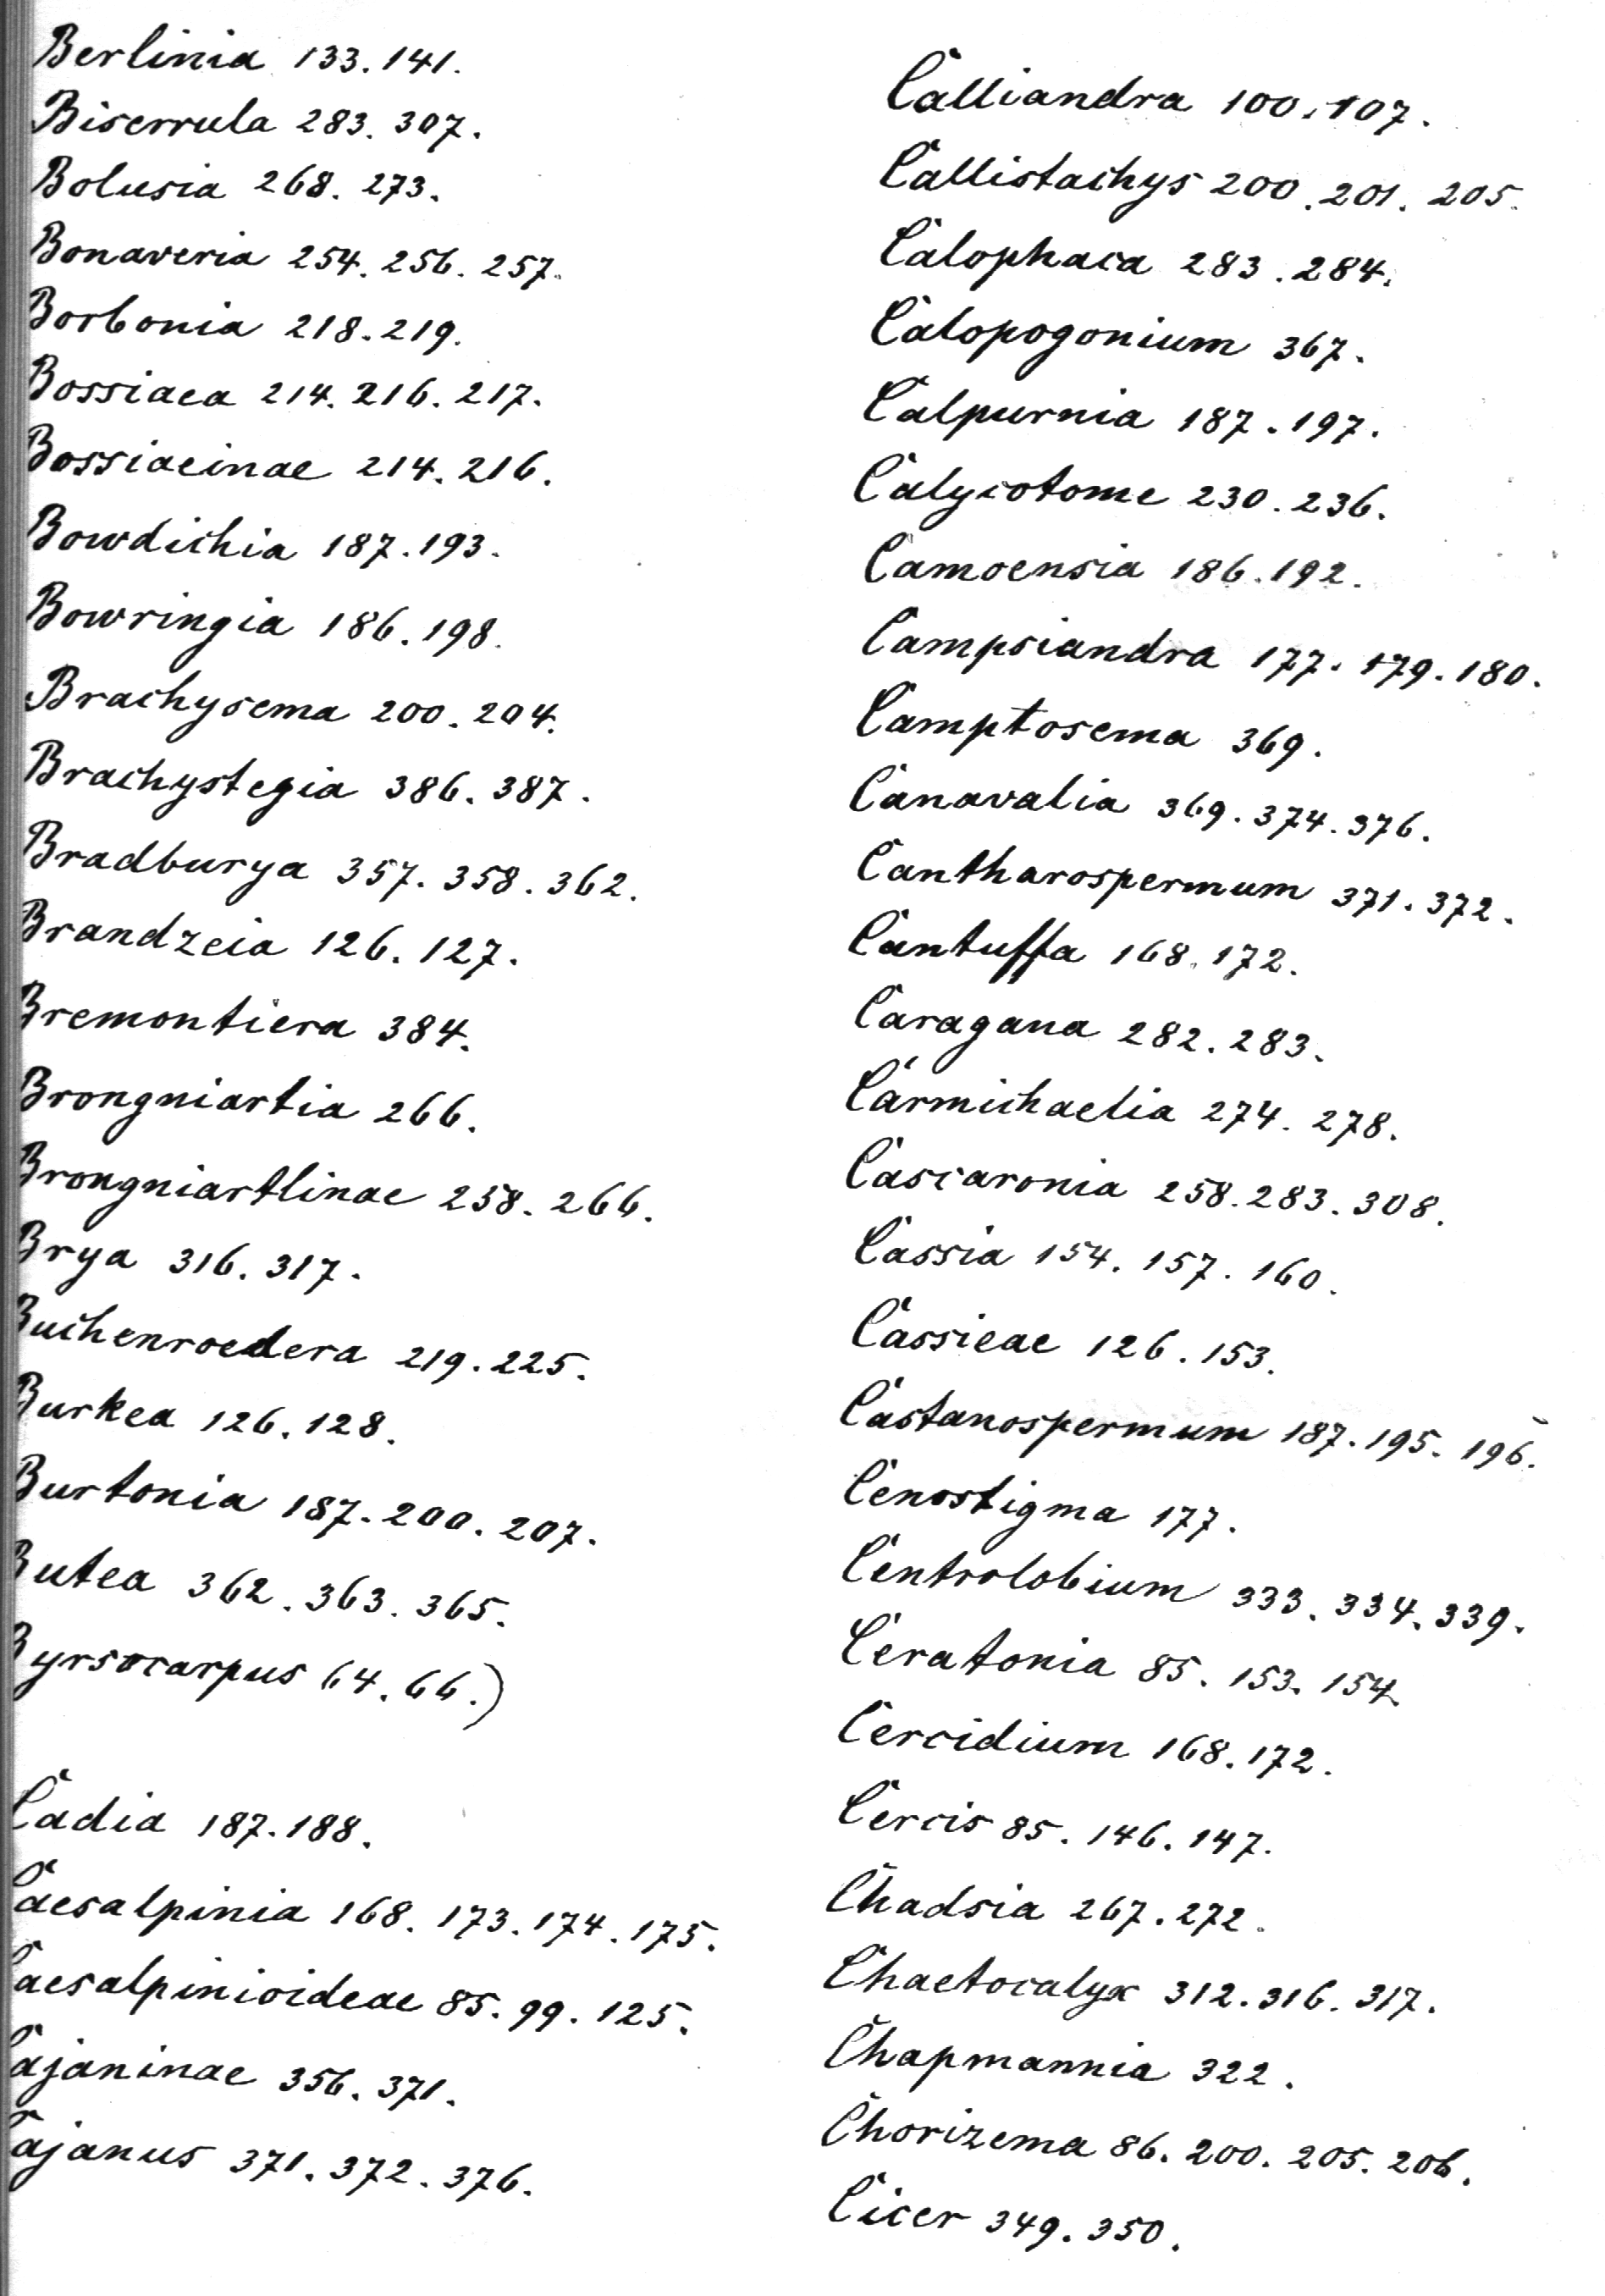 Berlinia 133. 141.
Biserrula 283. 307.
Bolusia 268. 273.
Bonaveria 254. 256. 257.
Borbonia 218. 219.
Bossiaea 214. 216. 217.
Bossiaeinae 214. 216.
Bowdichia 187. 193.
Bowringia 186. 198.
Brachysema 200. 204.
Brachystegia 386. 387.
Bradburya 357. 358. 362.
Brandzeia 126. 127.
Bremontiera 384.
Brongniartia 266.
Brongniartlinae 258. 266.
Brya 316. 317.
Buchenroedera 219. 225.
Burkea 126. 128.
Burtonia 187. 200. 207.
Butea 362. 363. 365.
Byrsocarpus (64. 66.)
Cadia 187. 188.
Caesalpinia 168. 173. 174. 175.
Caesalpinioideae 85. 99. 125.
Cajaninae 356. 371.
Cajanus 371. 372. 376.
Calliandra 100. 107.
Callistachys 200. 201. 205.
Calophaca 283. 284.
Calopogonium 367.
Calpurnia 187. 197.
Calycotome 230. 236.
Camoensia 186. 192.
Campsiandra 177. 179. 180.
Camptosema 369.
Canavalia 369. 374. 376.
Cantharospermum 371. 372.
Cantuffa 168. 172.
Caragana 282. 283.
Carmichaelia 274. 278.
Cascaronia 258. 283. 308.
Cassia 154. 157. 160.
Cassieae 126. 153.
Castanospermum 187. 195. 196.
Cenostigma 177.
Centrolobium 333. 334. 339.
Ceratonia 85. 153. 154.
Cercidium 168. 172.
Cercis 85. 146. 147.
Chadsia 267. 272.
Chaetocalyx 312. 316. 317.
Chapmannia 322.
Chorizema 86. 200. 205. 206.
Cicer 349. 350.